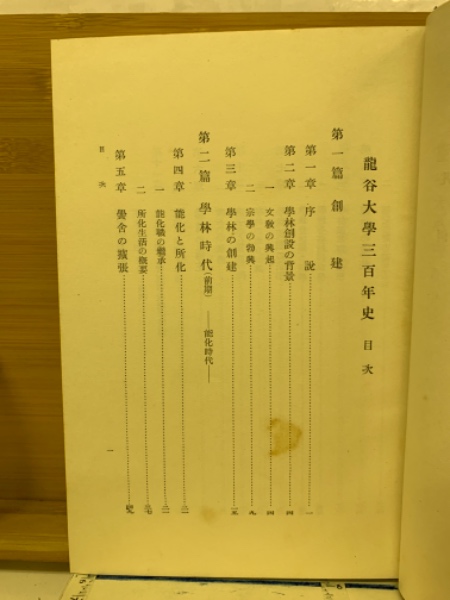 龍谷大學三百年史 目次
第一篇 創建
第一章 序說 一
第二章 學林創設の背景 四
一 文敎の興起 四
二 宗學の勃興 九
第三章 學林の創建 一五
第二篇 學林時代(前期) ——能化時代——
第四章 能化と所化 三一
一 能化職の繼承 三一
二 所化生活の槪要
第五章 黌舍の擴張
目次
一